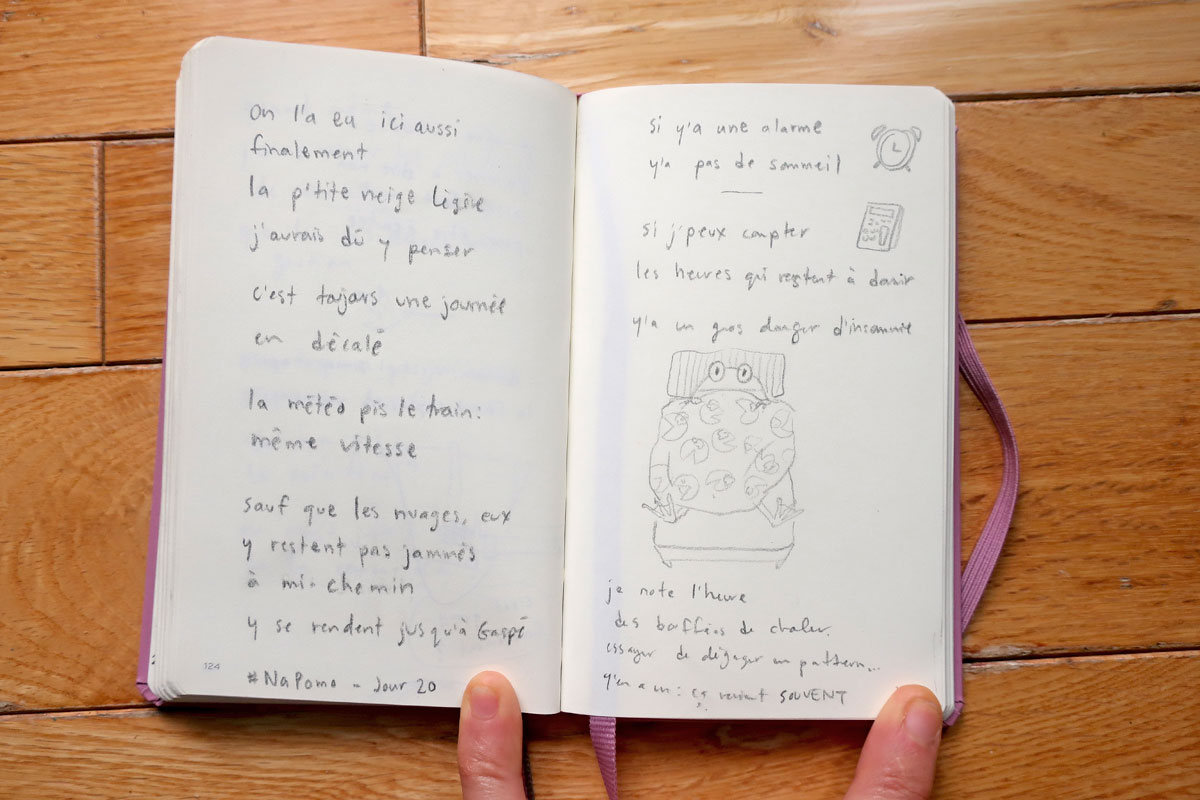 on l'a eu ici aussi
finalement
la p'tite neige légère
j'aurais dû y penser
c'est toujours une journée
en décalé
la météo pis le train:
même vitesse
sauf que les nuages, eux
y restent pas jammés
à mi-chemin
y se rendent jusqu'à Gaspé
124
#NaPoMo - Jour 20
si y'a une alarme
y'a pas de sommeil
si j'peux compter
les heures qui restent à dormir
y'a un gros danger d'insomnie
je note l'heure
des bouffées de chaleur.
essayer de dégager un pattern...
y'en a un: ça revient SOUVENT